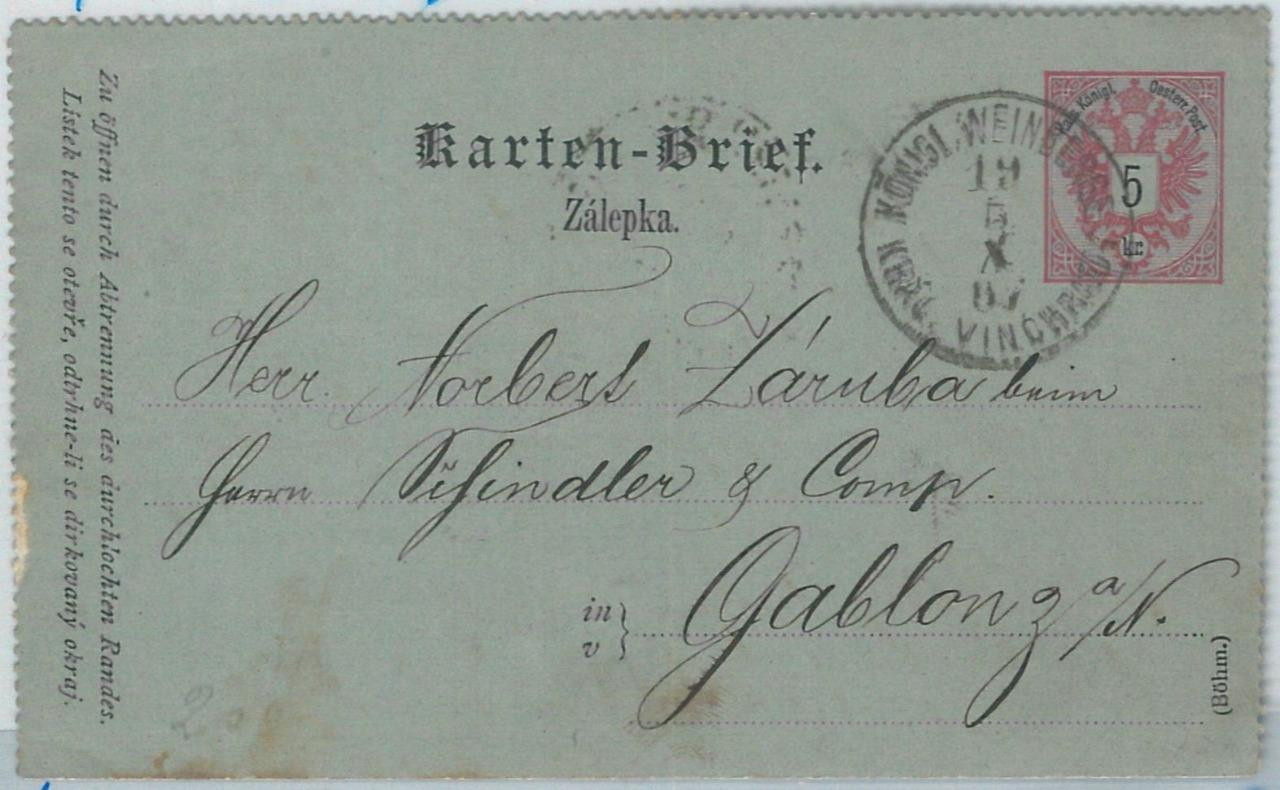 Karten-Brief.
Zálepka.
Kais. Königl. Oesterr. Post.
5
kr.
KÖNIGL. WEINBERGE
19
5
X
KRÁL. VINOHRADY
Herr Norbert Záruba beim
Herrn Schindler & Comp.
in
v
Gablonz a/N.
(Böhm.)
Zu öffnen durch Abtrennung des durchlochten Randes.
Lístek tento se otevře, odtrhne-li se dirkovaný okraj.